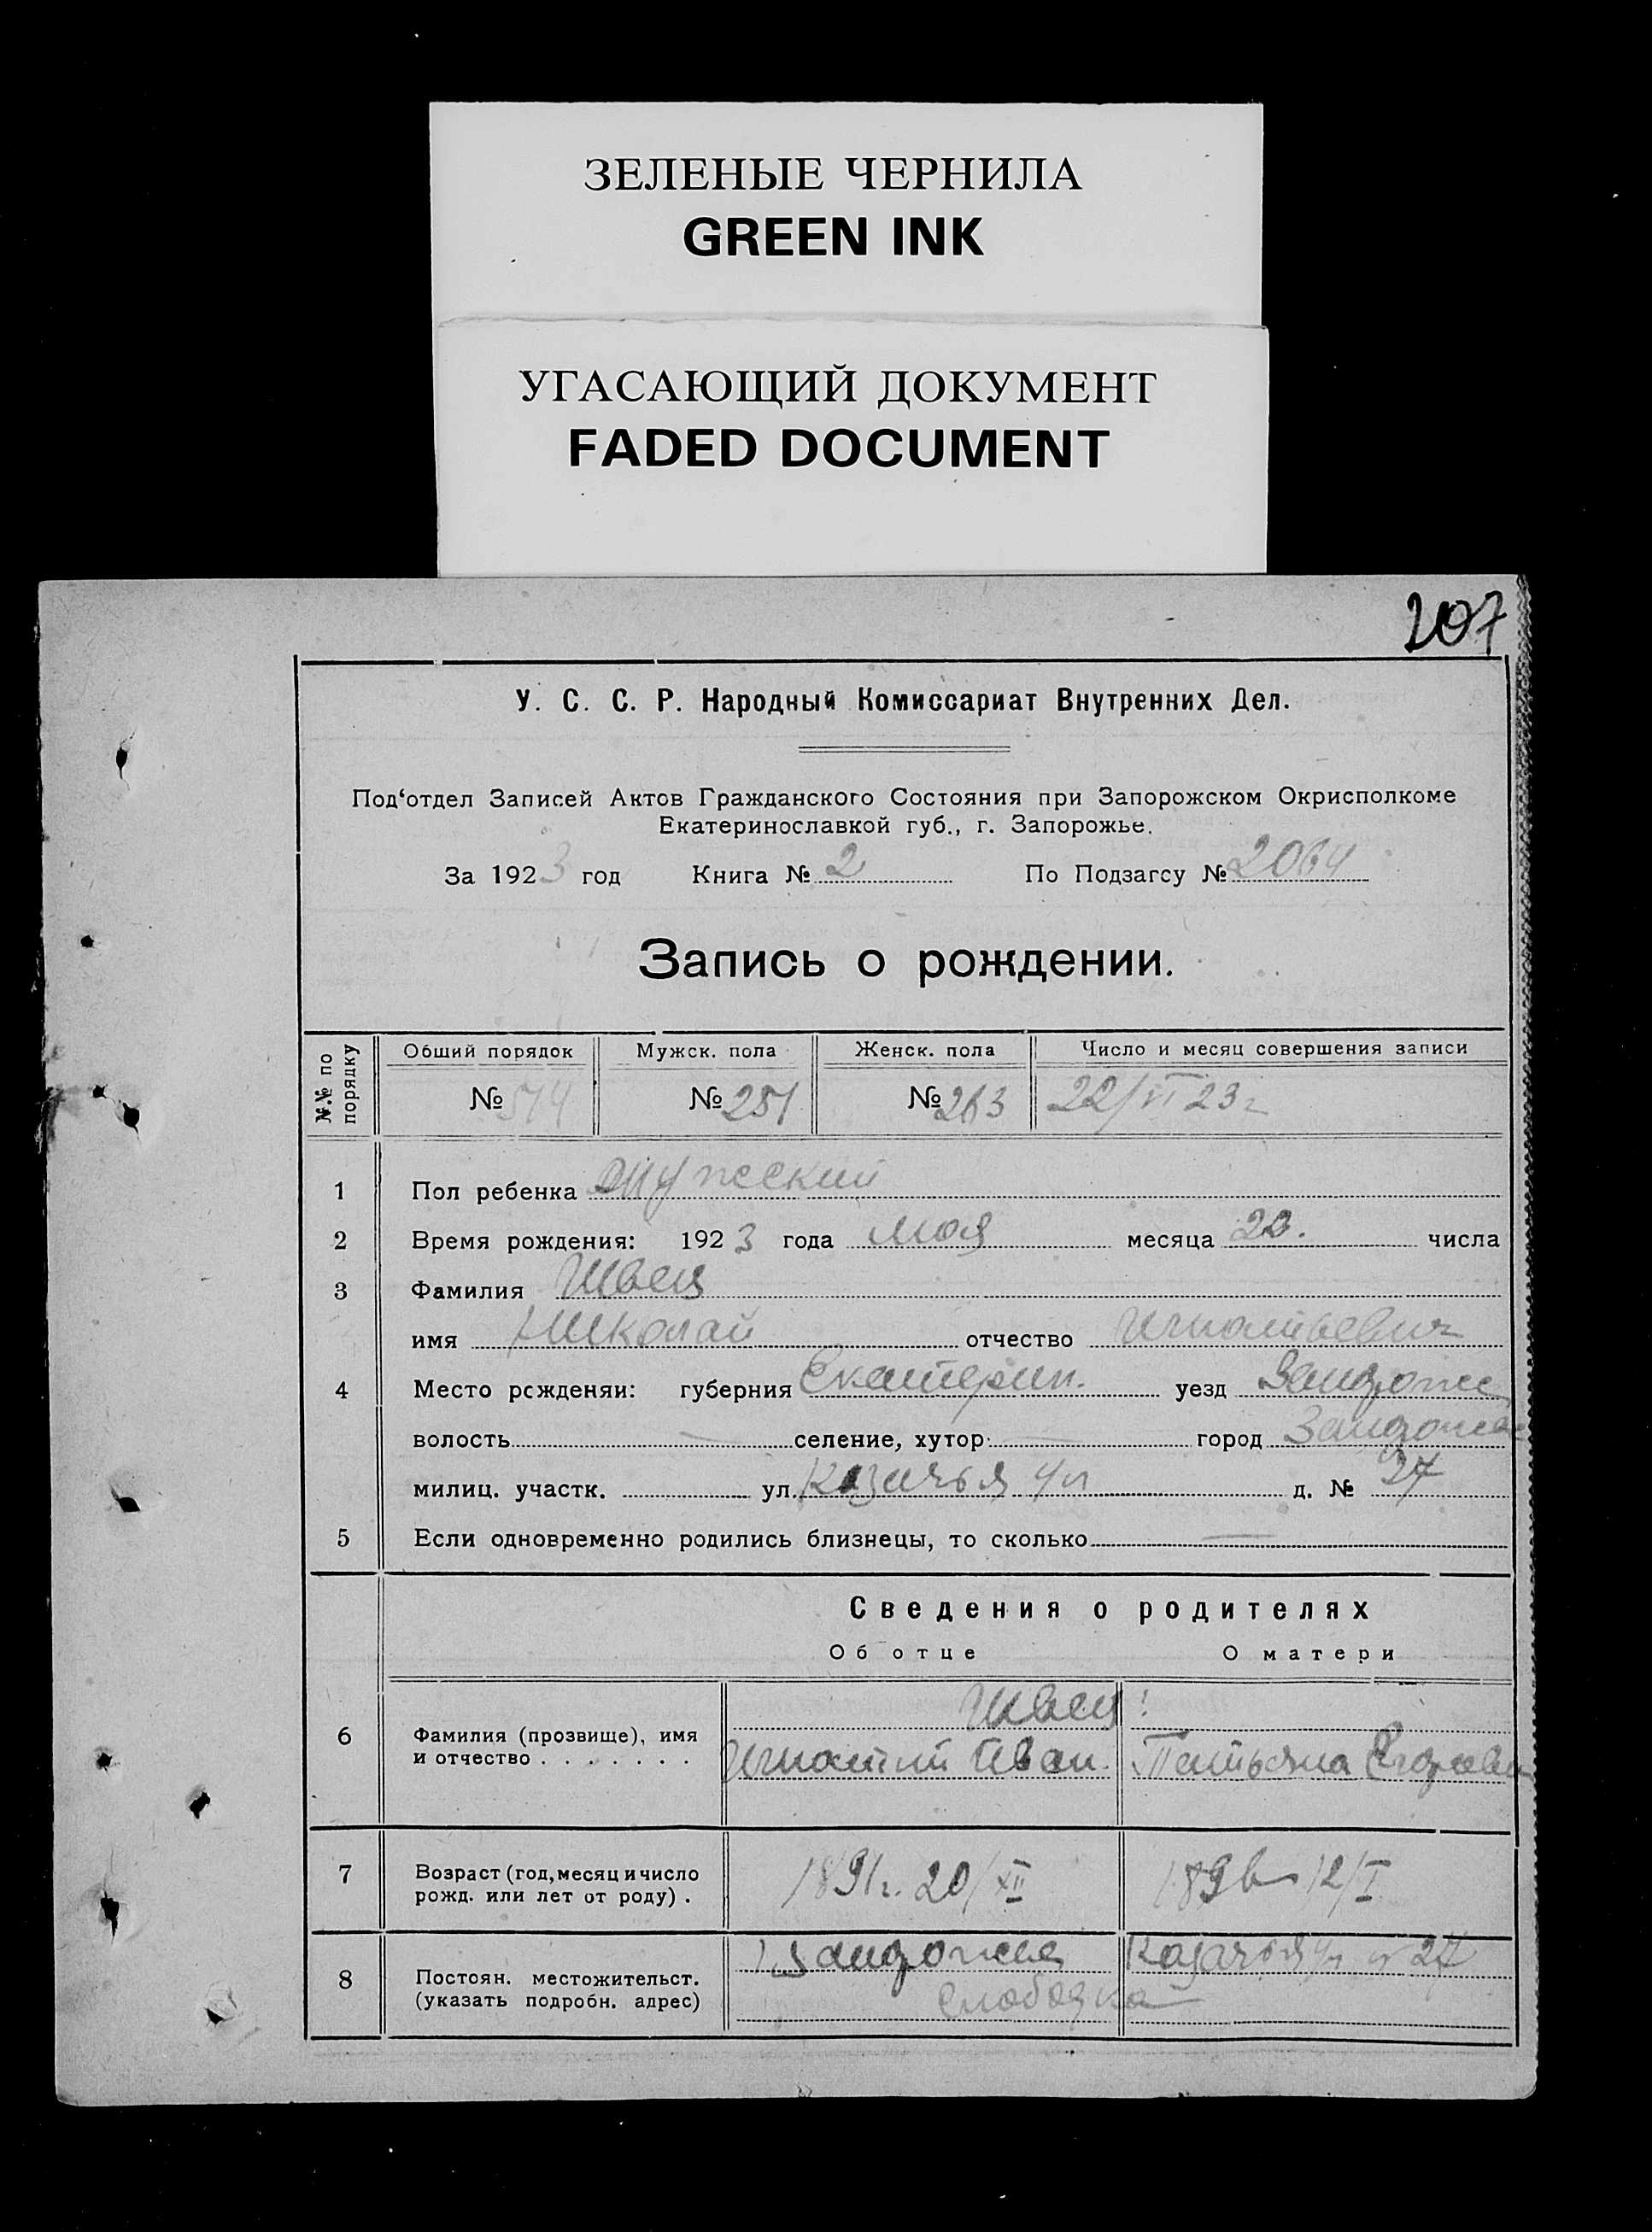 ЗЕЛЕНЫЕ ЧЕРНИЛА
GREEN INK
УГАСАЮЩИЙ ДОКУМЕНТ
FADED DOCUMENT
207
У. С. С. Р. Народный Комиссариат Внутренних Дел.
Под‘отдел Записей Актов Гражданского Состояния при Запорожском Окрисполкоме
Екатеринославкой губ., г. Запорожье.
За 1923 год Книга № 2 По Подзагсу № 2064
Запись о рождении.
№№ по порядку Общий порядок Мужск. пола Женск. пола Число и месяц совершения записи
№ 514 № 251 № 263 22/VI 23 г
1 Пол ребенка Мужеский
2 Время рождения: 1923 года мая месяца числа
3 Фамилия Швец
имя Николай отчество Игнатьевич
4 Место рсждения: губерния Екатерин. уезд Запорож
волость — селение, хутор — город Запорожье
милиц. участк. ул. Казачья ул д. № 27
5 Если одновременно родились близнецы, то сколько —
Сведения о родителях
Об отце О матери
Швец
6 Фамилия (прозвище), имя
и отчество . . . . . . . Игнатий Иван. Татьяна Егоровн
7 Возраст (год, месяц и число
рожд. или лет от роду) . 1891 г. 20/XII 12/I
8 Постоян. местожительст.
(указать подробн. адрес)
Запорожье Казачья ул № 27
Слободка